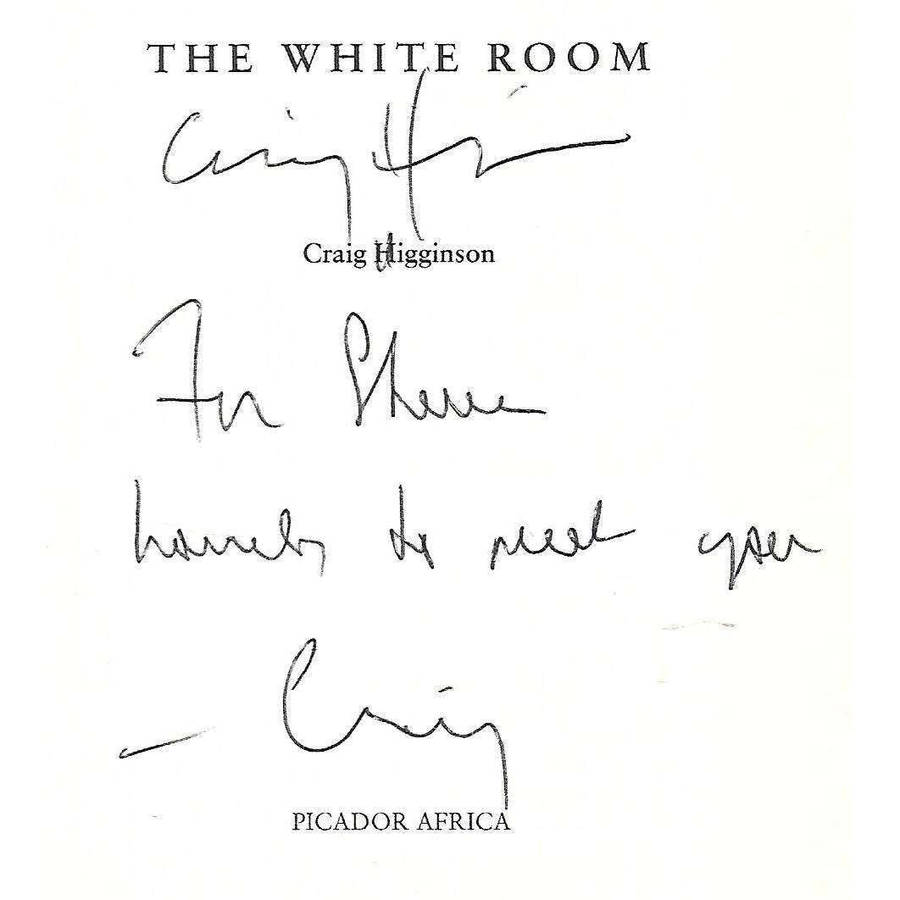 THE WHITE ROOM
Craig Higginson
For
to meet you
— Craig
PICADOR AFRICA